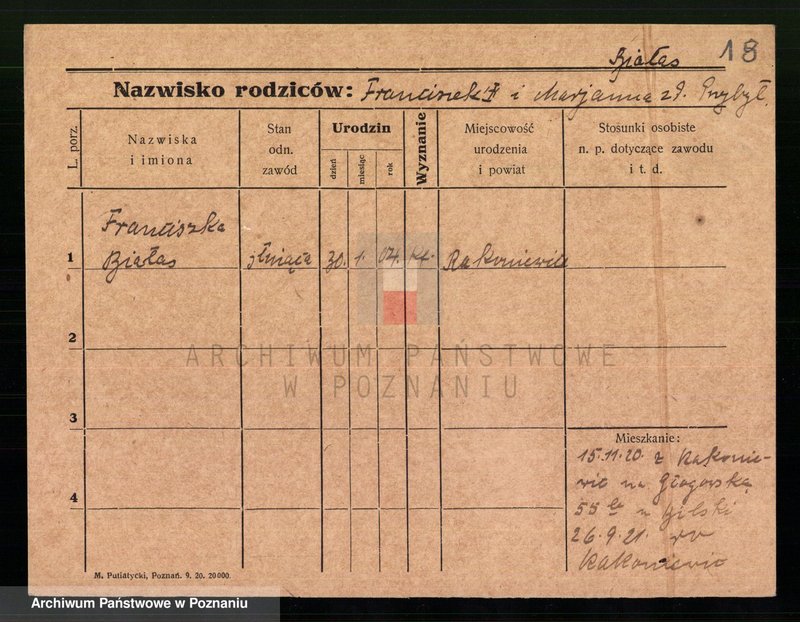 Białas 18
Nazwisko rodziców: Franciszek i Marjanna zd. Przybył.
L. porz.
Nazwiska
i imiona
Stan
odn.
zawód
Urodzin
dzień
miesiąc
rok
Wyznanie
Miejscowość
urodzenia
i powiat
Stosunki osobiste
n. p. dotyczące zawodu
i t. d.
Franciszka
1 Białas służąca 30. 1. 04. kt. Rakoniewice
2
ARCHIWUM PAŃSTWOWE
W POZNANIU
3
Mieszkanie:
15.11.20. z Rakonie-
wic na Głogowską
55 u
4
26.9.21. do
Rakoniewic
M. Putiatycki, Poznań. 9. 20. 20000.
Archiwum Państwowe w Poznaniu